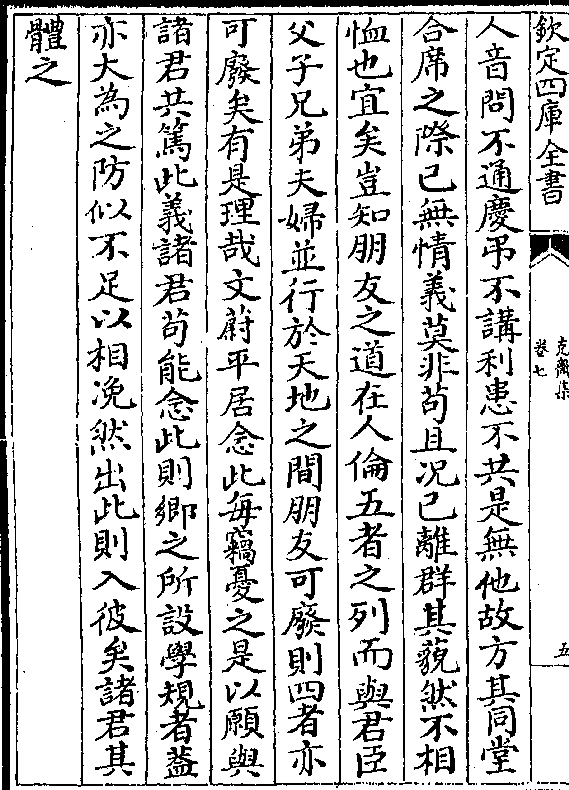 欽定四庫全書
克齋集
卷七
五
人音問不通慶弔不講利患不共是無他故方其同堂
合席之際已無情義莫非苟且况已離群其藐然不相
恤也宜矣豈知朋友之道在人倫五者之列而與君臣
父子兄弟夫婦並行於天地之間朋友可廢則四者亦
可廢矣有是理哉文蔚平居念此每竊憂之是以願與
諸君共篤此義諸君茍能念此則鄉之所設學規者葢
亦大為之防似不足以相凂然出此則入彼矣諸君其
體之